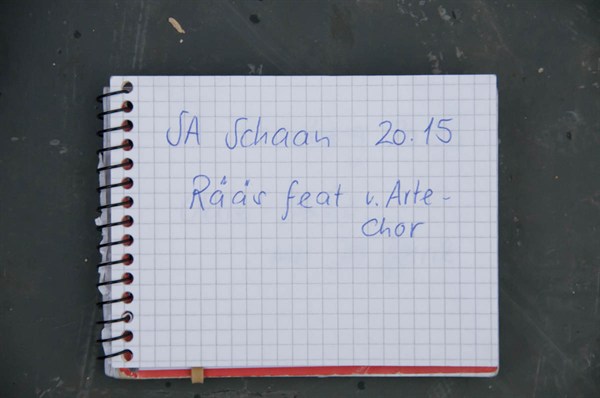 SA Schaan 20.15
Rääs feat v. Arte-
Chor